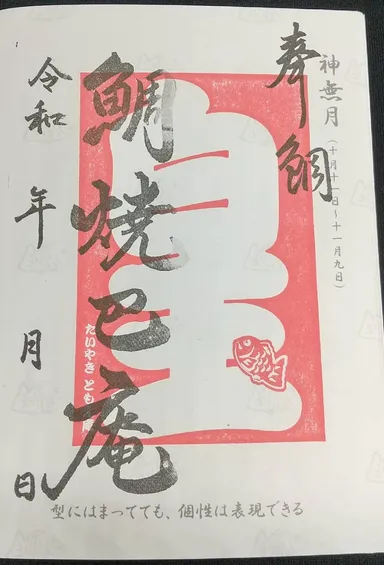 神無月(十月十一日~十一月九日)
奉鯛
鯛焼巴庵
たいやき とも
令和 年 月 日
型にはまってても、個性は表現できる